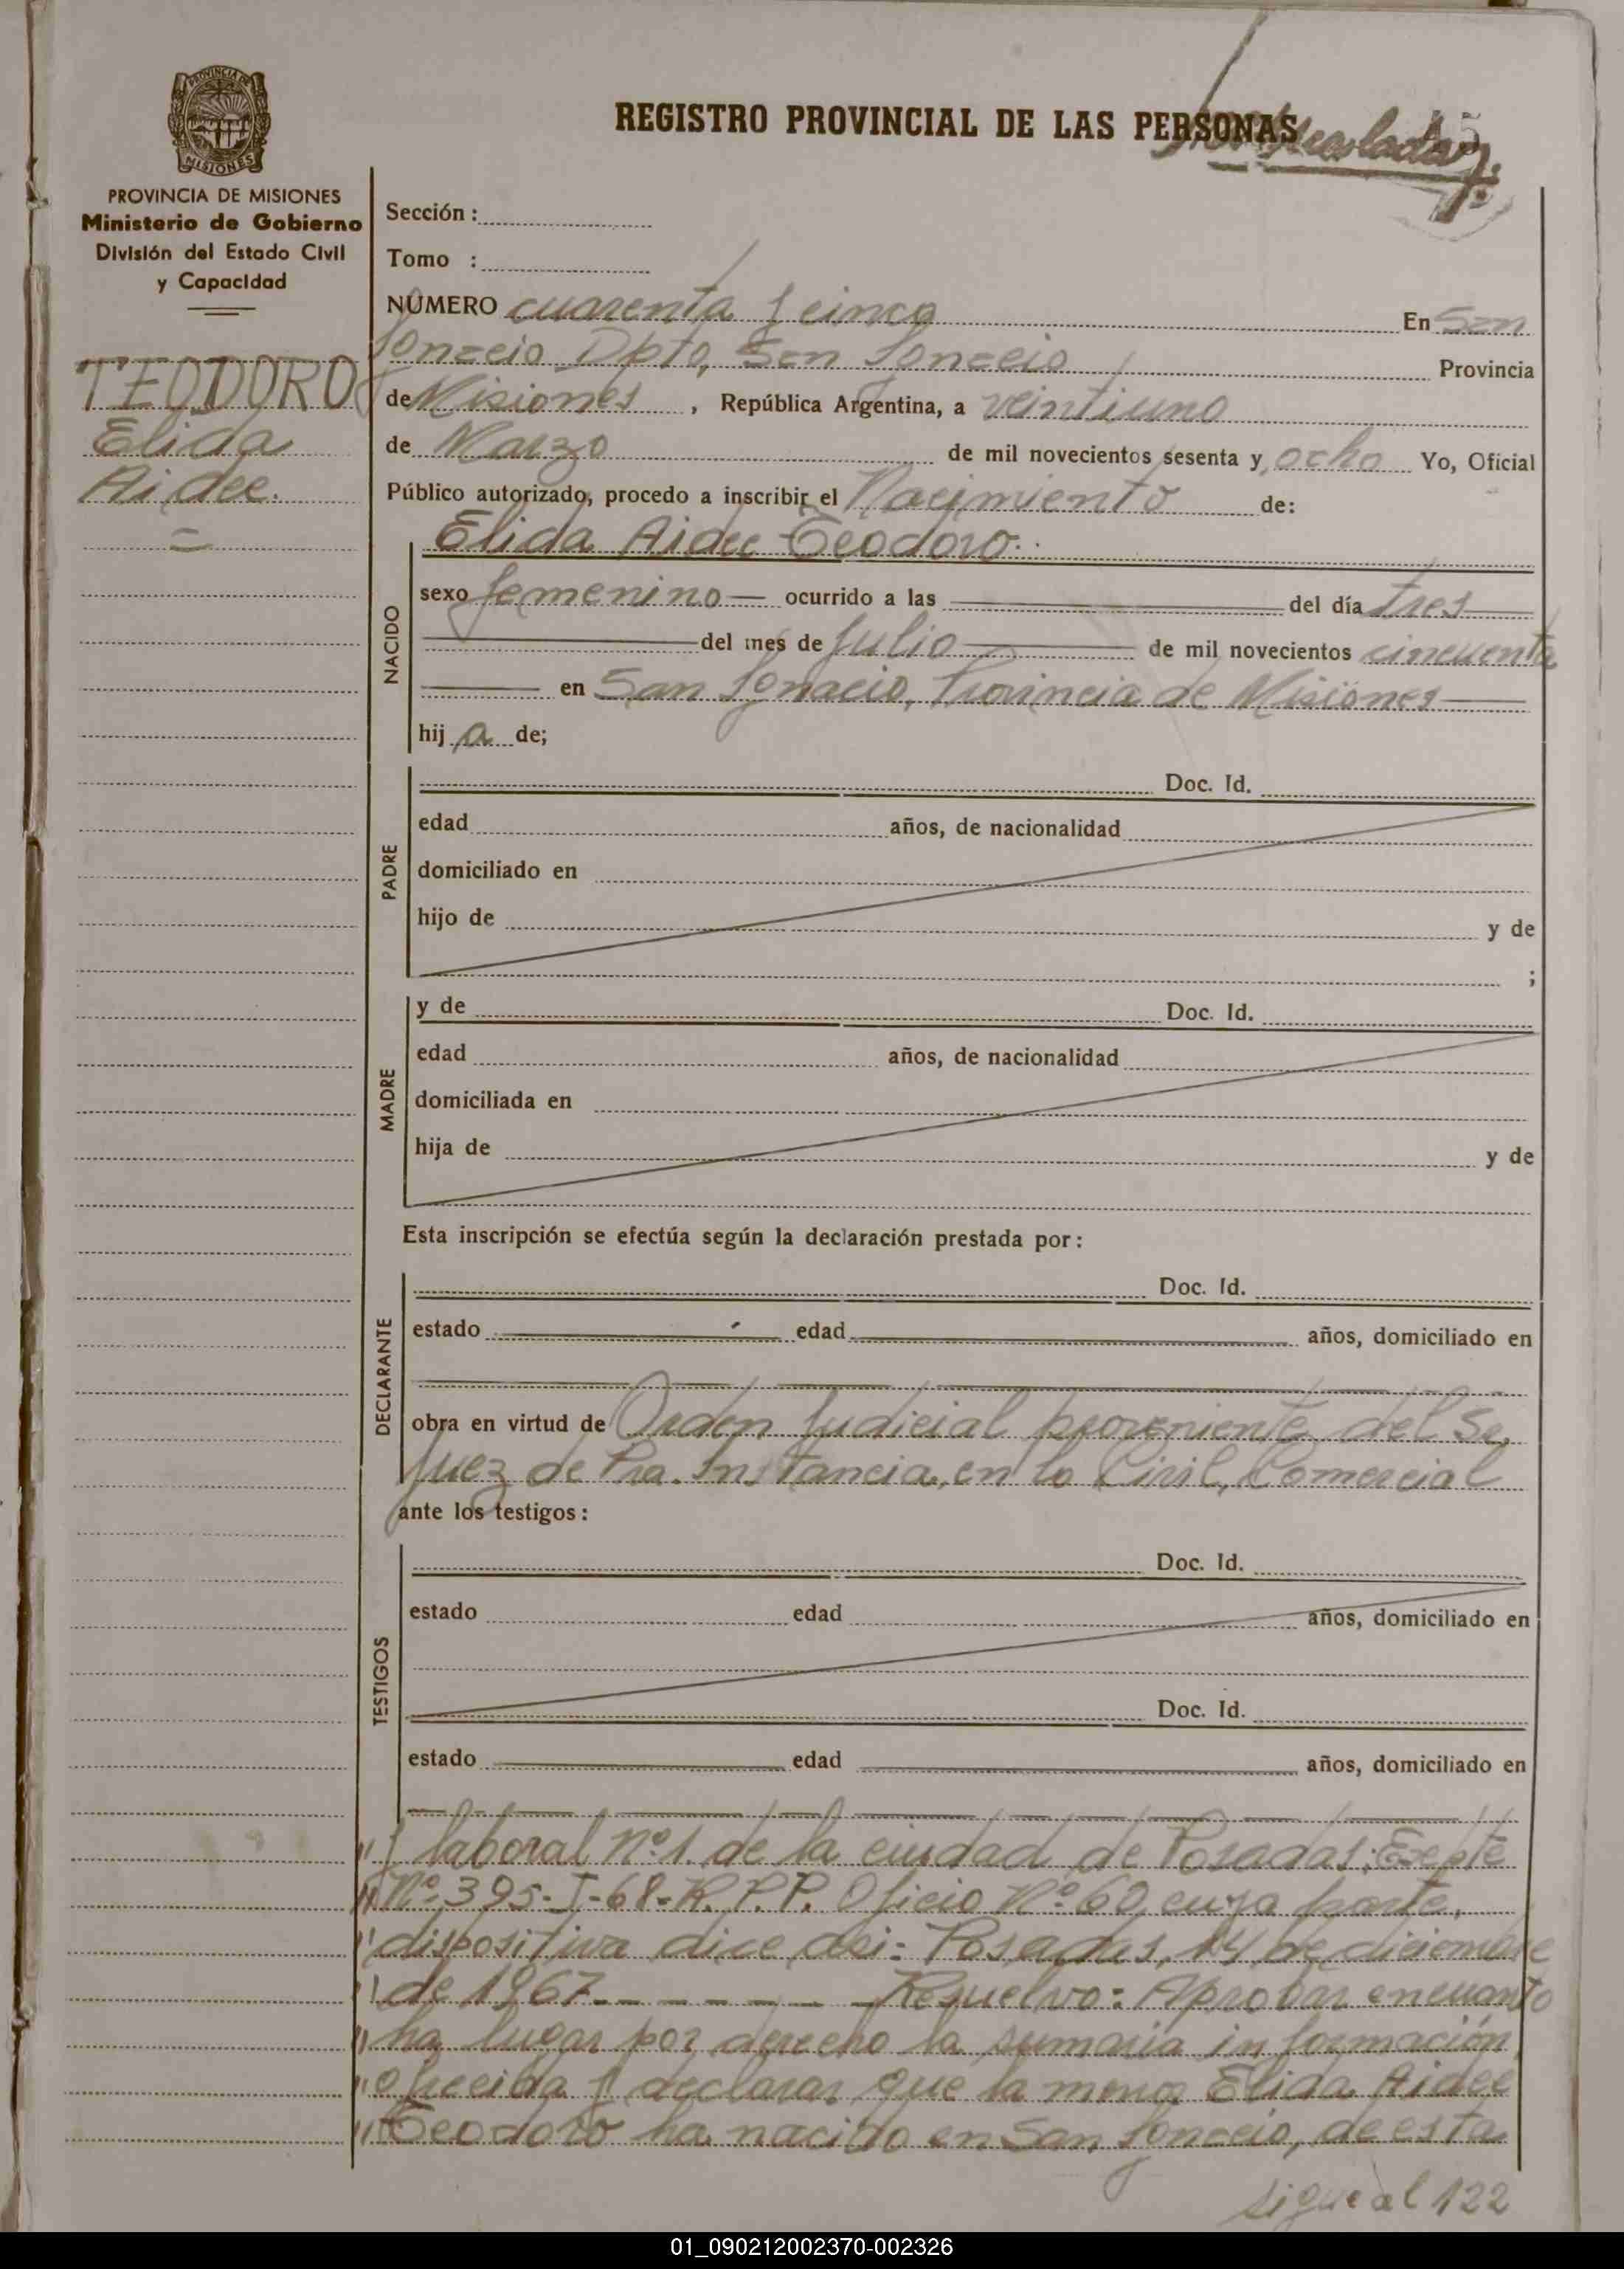 PROVINCIA DE MISIONES
PROVINCIA DE MISIONES
Ministerio de Gobierno
División del Estado Civil
y Capacidad
TEODORO
Elida
Aidee.
REGISTRO PROVINCIAL DE LAS PERSONAS
Sección :
Tomo :
NÚMERO cuarenta y cinco En San
Ignacio Dpto, San Ignacio Provincia
de Misiones, República Argentina, a veintiuno
de Marzo de mil novecientos sesenta y ocho Yo, Oficial
Público autorizado, procedo a inscribir el Nacimiento de:
NACIDO
Elida Aidee Teodoro.
sexo femenino ocurrido a las del día tres
del mes de Julio de mil novecientos cincuenta
en San Ignacio, Provincia de Misiones
hij a de;
PADRE
Doc. Id.
edad años, de nacionalidad
domiciliado en
hijo de y de
;
MADRE
y de Doc. Id.
edad años, de nacionalidad
domiciliada en
hija de y de
Esta inscripción se efectúa según la declaración prestada por:
DECLARANTE
Doc. Id.
estado edad años, domiciliado en
obra en virtud de Orden Judicial proveniente del Sr.
Juez de Pra. Instancia, en lo Civil, Comercial
ante los testigos:
TESTIGOS
Doc. Id.
estado edad años, domiciliado en
Doc. Id.
estado edad años, domiciliado en
" y laboral nº 1. de la ciudad de Posadas; Expte
" Nº 395-I-68-R.P.P. Oficio Nº 60, cuya parte,
" dispositiva dice así: Posadas, 14 de diciembre
" de 1967 - - - - - - Resuelvo: Aprobar en cuanto
" ha lugar por derecho la sumaria información
" ofrecida y declarar que la menor Elida Aidee
" Teodoro ha nacido en San Ignacio, de esta
sigue al 122
01_090212002370-002326